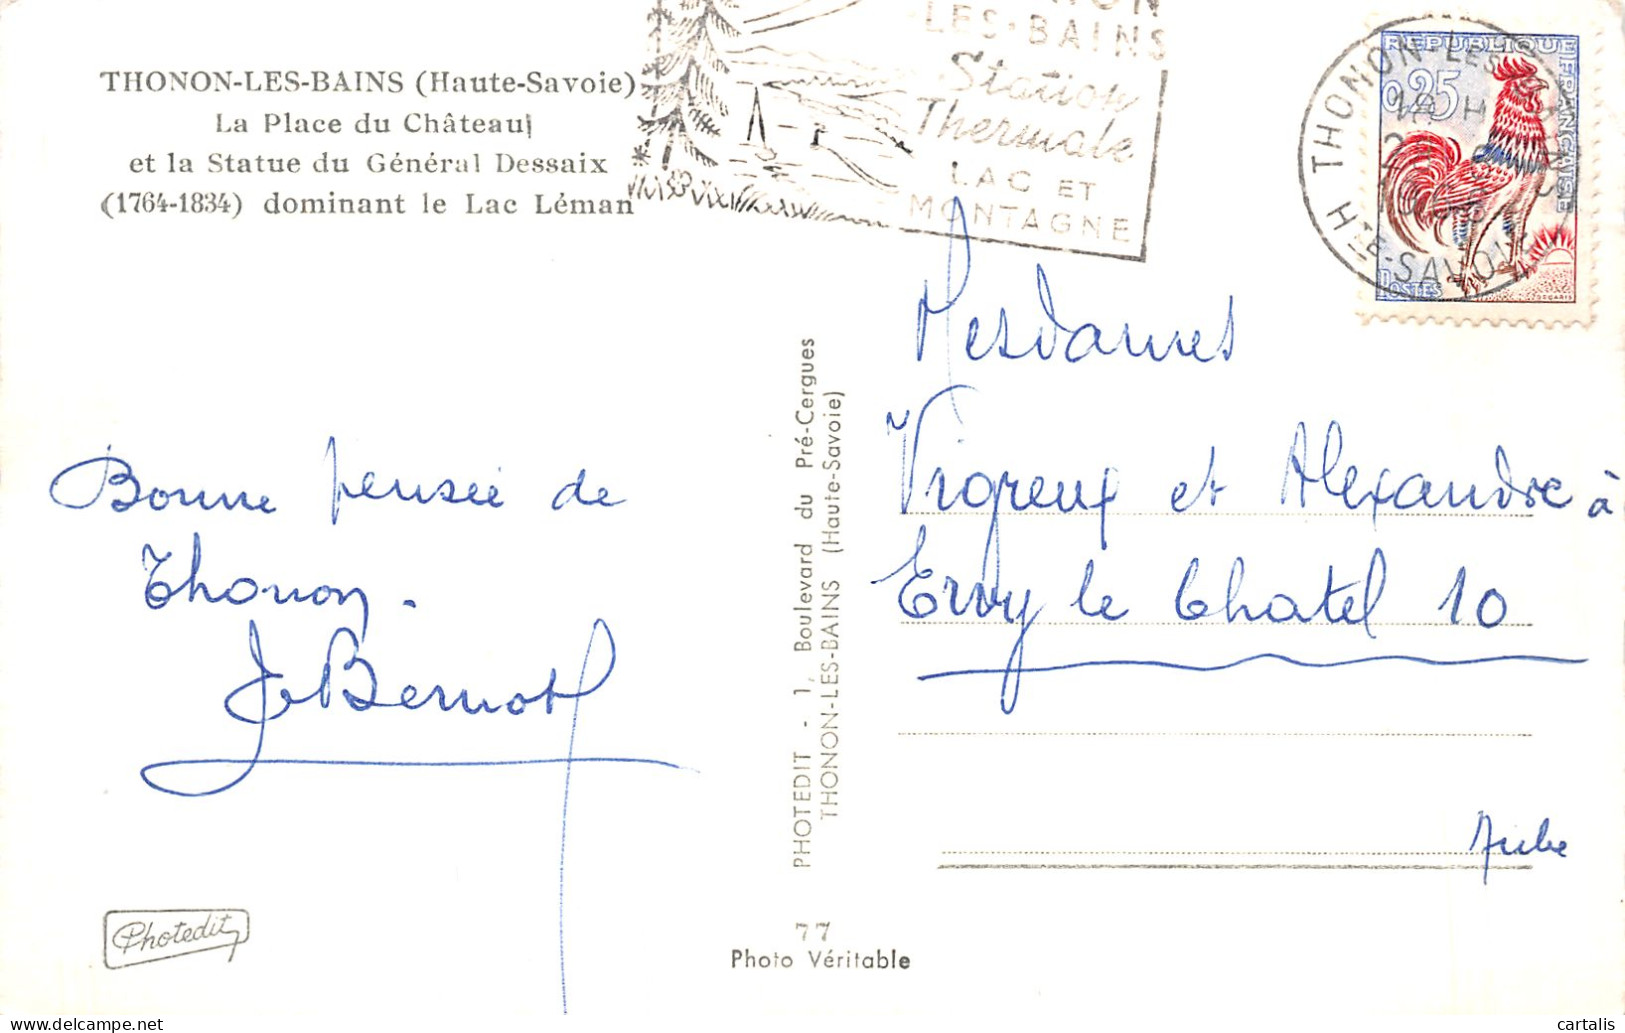 THONON-LES-BAINS (Haute-Savoie)
La Place du Château
et la Statue du Général Dessaix
(1764-1834) dominant le Lac Léman
LES-BAINS
Station
Thermale
LAC ET
MONTAGNE
THONON-LES-BAINS
Hte-SAVOIE
REPUBLIQUE FRANÇAISE
0,25
POSTES
DECARIS
Bonne pensée de
Thonon.
Bernot
PHOTEDIT - 1, Boulevard du Pré-Cergues
THONON-LES-BAINS (Haute-Savoie)
Mesdames
Vigreux et Alexandre à
Ervy le Chatel 10
Aube
Photedit
77
Photo Véritable
cartalis
delcampe.net